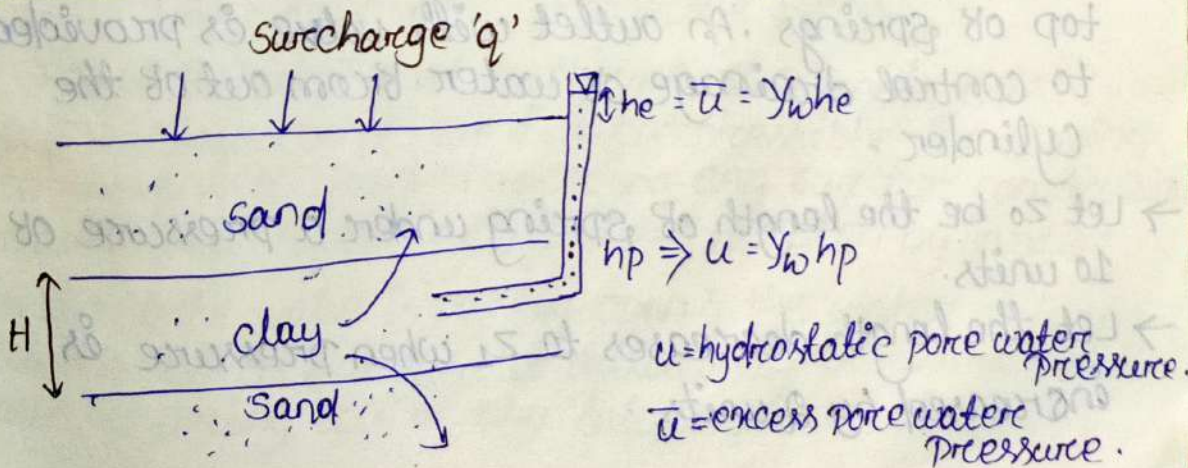 Surcharge 'q'
he = u̅ = γw he
Sand
hp ⇒ u = γw hp
H
clay
u = hydrostatic pore water pressure.
Sand
u̅ = excess pore water pressure.